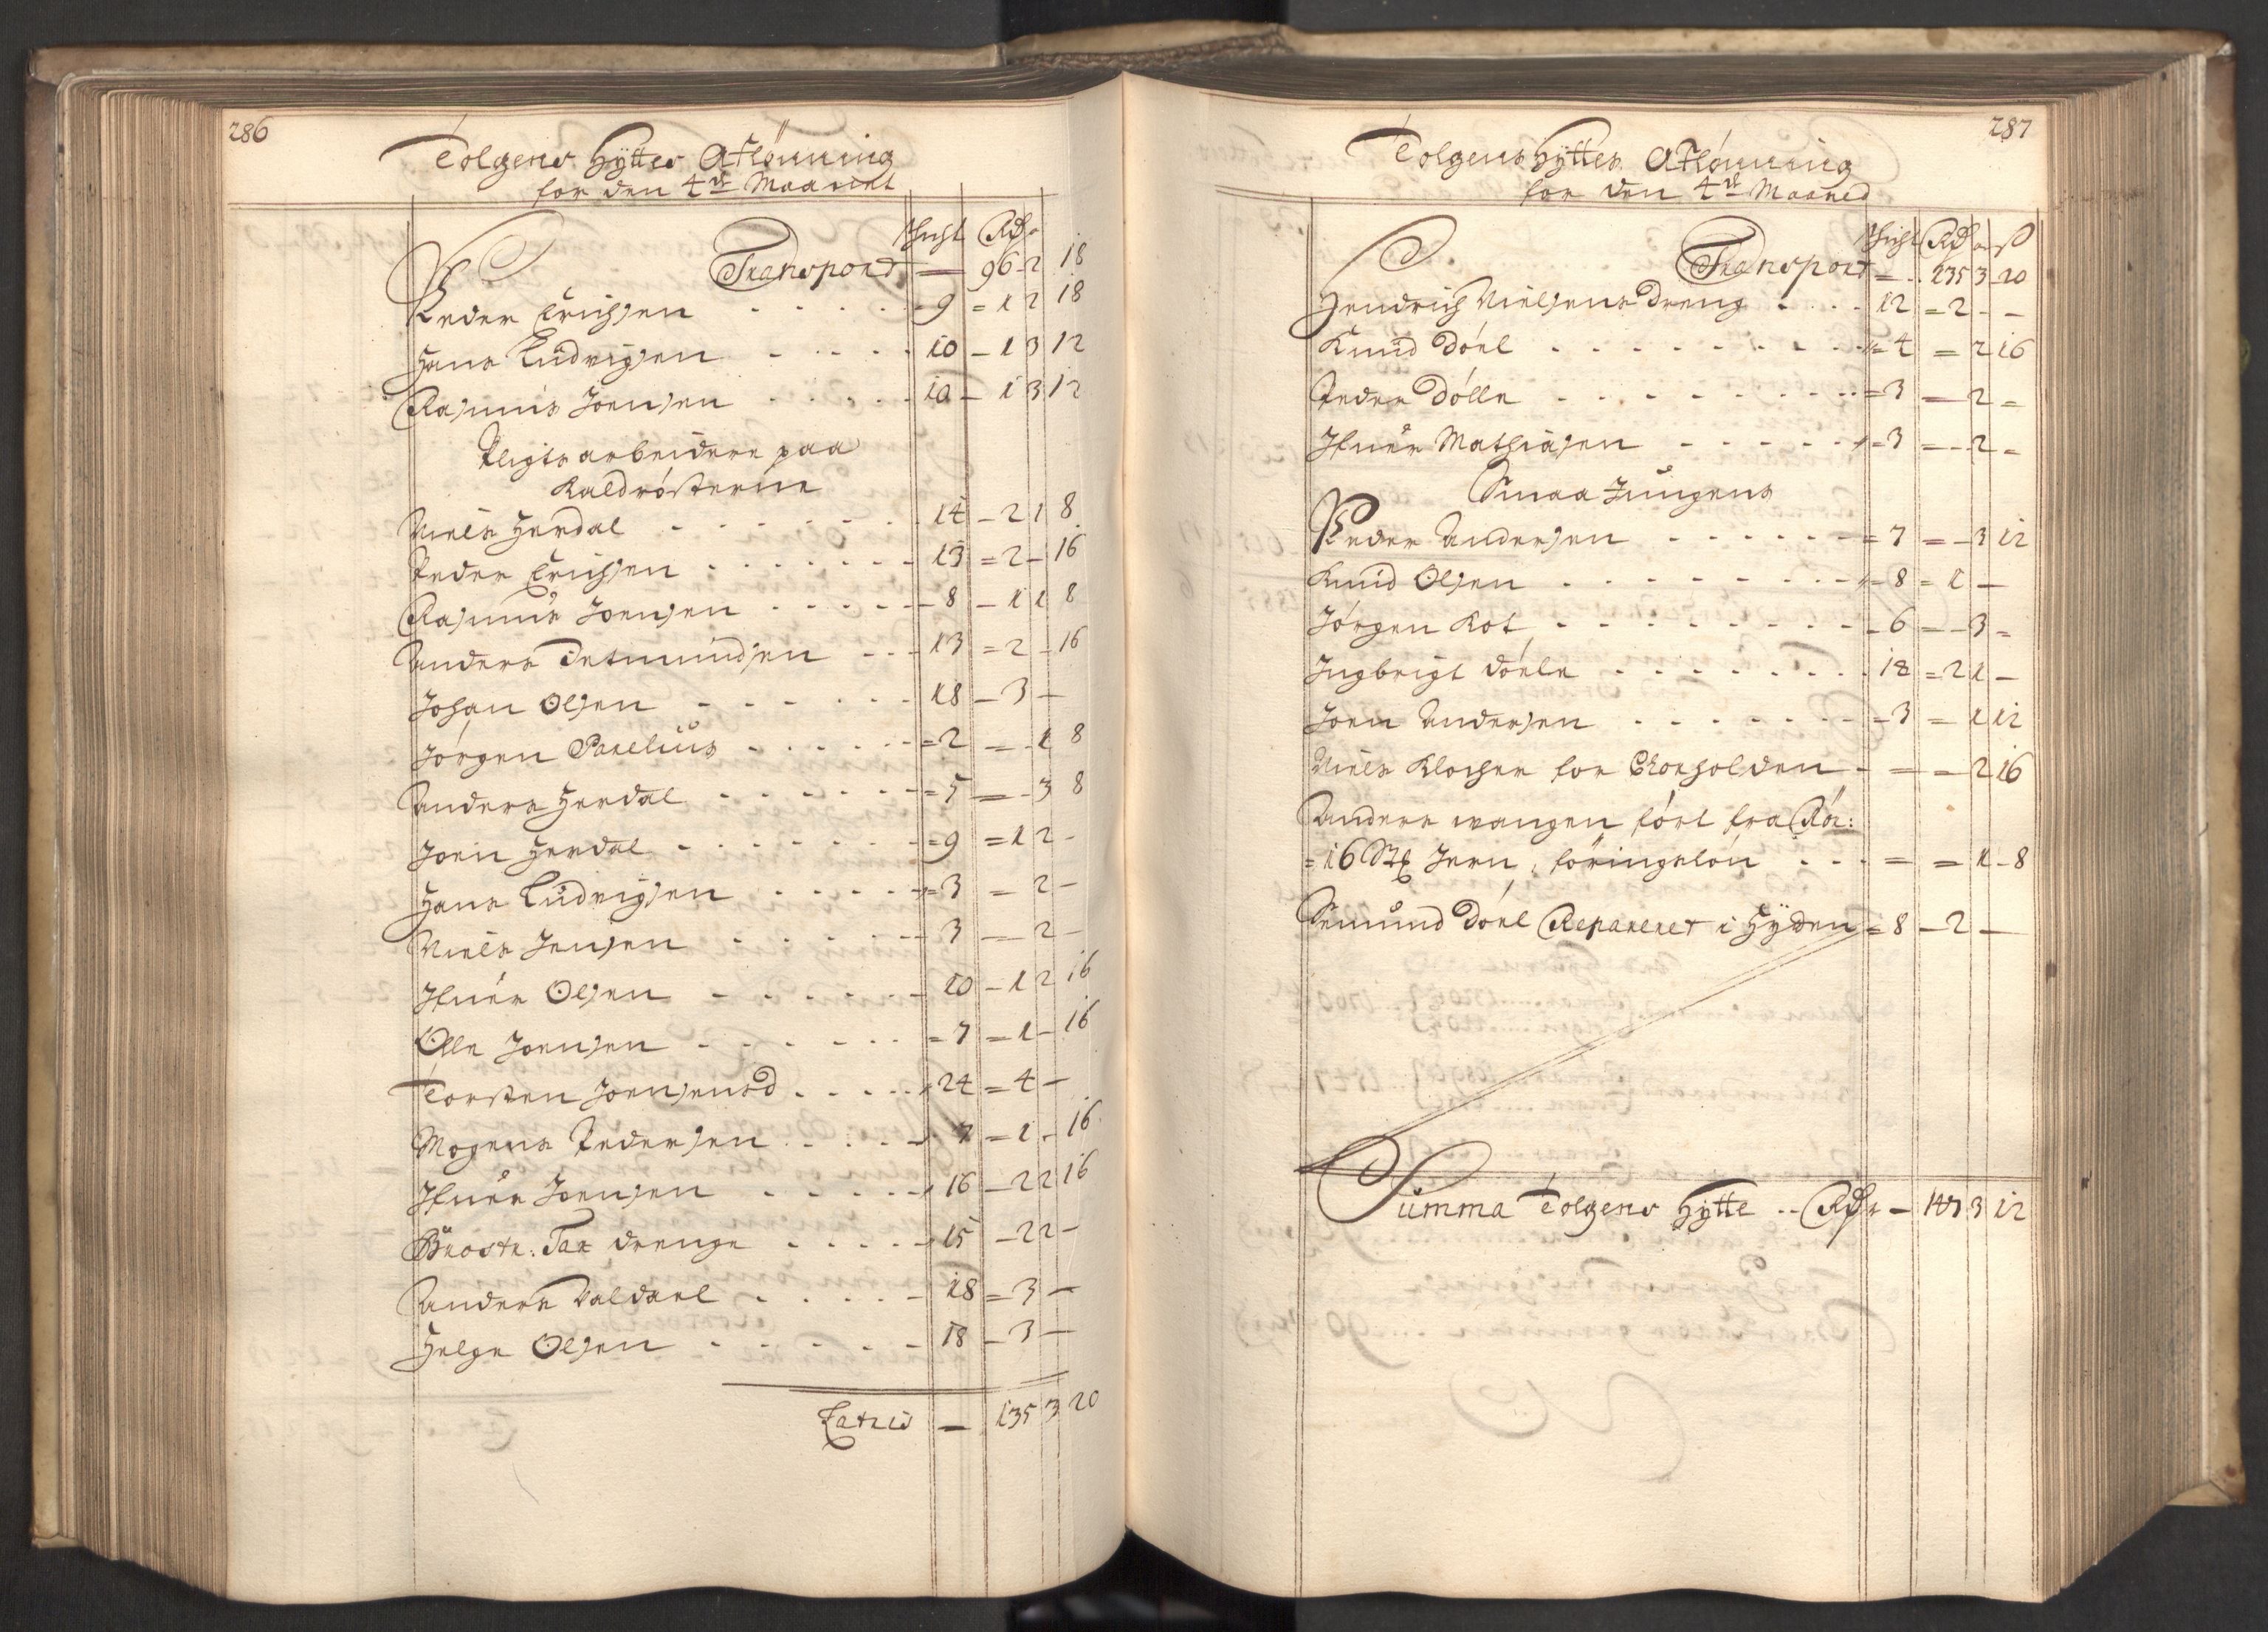 286
Tolgens Hÿttes Aflønning
for den 4de Maanet
Schicht Rdr
Transport — 96 - 2 18
Peder Erichsen . . . . . 9 = 1 2 18
Hans Ludvigsen . . . . 10 - 1 3 12
Rasmus Joensen . . . . . 10 - 1 3 12
Pligts arbeidere paa
Kaldrøsterne
Niels Herdal . . . . . . 14 - 2 1 8
Peder Erichsen . . . . . . . 13 = 2 - 16
Rasmus Joensen . . . . . 8 - 1 1 8
Anders Setmundsen . . . 13 = 2 - 16
Johan Olsen . . . . . . 18 - 3 —
Jørgen Parelius . . . . . = 2 — - 1 8
Anders Herdal . . . . . . = 5 — - 3 8
Joen Herdal . . . . . . . = 9 = 1 2 -
Hans Ludvigsen . . . . . = 3 = 2 -
Niels Jensen . . . . . 3 — 2 -
Ifuer Olsen . . . . . . 10 - 1 2 16
Olle Joensen . . . . . . = 7 = 1 - 16
Torsten Joensensd . . . . . 24 = 4 —
Mogens Pedersen . . . . . 7 = 1 - 16
Ifuer Joensen . . . . . 16 - 2 2 16
Brostr: Tax drenge . . . . . 15 - 2 2 -
Anders Valdael . . . . . 18 = 3 —
Helge Olsen . . . . . . 18 - 3 —
Latris — 135 3 20
287
Tolgens Hÿttes Aflønning
for den 4de Maaned
Schicht Rdr ß
Transport = . . 135 3 20
Hendrich Nielsens dreng . . . . 12 = 2 - -
Knud Døel . . . . . . . . . = 4 = 2 16
Peder Dølle . . . . . . . . . = 3 — 2 =
Ifuer Mathiasen . . . . . . = 3 — - 2 =
Smaa Jungens
Peder Andersen . . . . . . = 7 = - 3 12
Knud Olsen . . . . . . . . = 8 = 1 —
Jørgen Kot . . . . . . . . . 6 = - 3 =
Ingbrigt Døele . . . . . . . . 18 = 2 1 —
Joen Andersen . . . . . . . = 3 = 1 12
Niels Klocher for Chorholden - — = 2 16
Anders wangen ført fra Rør:
= 16 Jern, føringsløn . . . = = 1 - 8
Semund Døel Reparerer i Hÿtten = 8 - 2 —
Summa Tolgens Hÿtte . . Rdr — 147 3 12